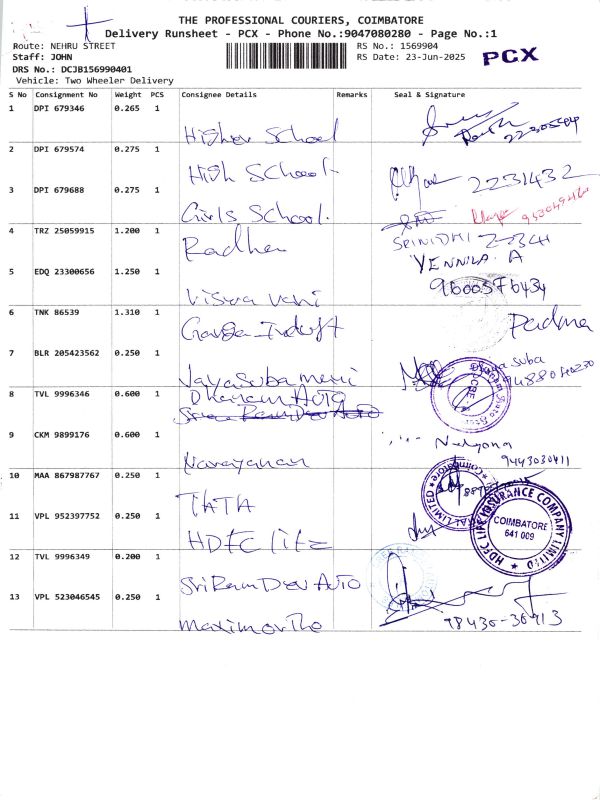 THE PROFESSIONAL COURIERS, COIMBATORE
Delivery Runsheet - PCX - Phone No.:9047080280 - Page No.:1
Route: NEHRU STREET
RS No.: 1569904
PCX
Staff: JOHN
RS Date: 23-Jun-2025
DRS No.: DCJB156990401
Vehicle: Two Wheeler Delivery
S No Consignment No Weight PCS Consignee Details Remarks Seal & Signature
1 DPI 679346 0.265 1
Higher School
2 DPI 679574 0.275 1
High School
2231432
3 DPI 679688 0.275 1
Girls School.
4 TRZ 25059915 1.200 1
Radha
SRINIDHI
VENNILA. A
5 EDQ 23300656 1.250 1
9600576434
Viswa vani
6 TNK 86539 1.310 1
Padma
7 BLR 205423562 0.250 1
Jayasubameni
8 TVL 9996346 0.600 1
Dhanam AUTO
Sree Ram Dev AUTO
9 CKM 9899176 0.600 1
9443030411
Narayanan
10 MAA 867987767 0.250 1
TATA
11 VPL 952397752 0.250 1
HDFC life
HDFC LIFE INSURANCE COMPANY LIMITED
COIMBATORE
641 009
12 TVL 9996349 0.200 1
Sri Ram Dev AUTO
13 VPL 523046545 0.250 1
98430-30913